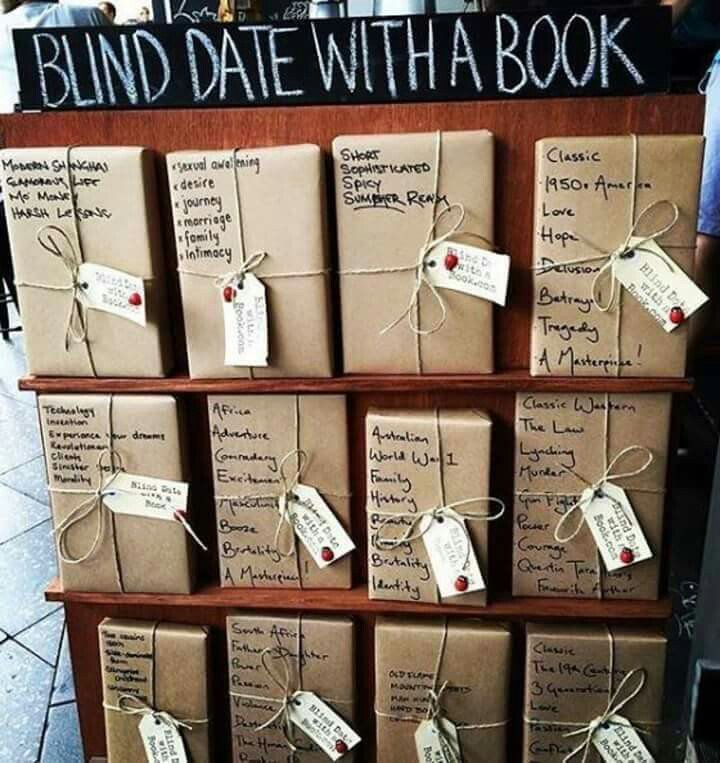 BLIND DATE WITH A BOOK
MODERN SHANGHAI
GLAMOROUS LIFE
MO MONEY
HARSH LESSONS
Blind Date
with a
Book.com
x sexual awakening
x desire
x journey
x marriage
x family
x intimacy
Book.com
SHORT
SOPHISTICATED
SPICY
SUMMER READ
Blind Date
with a
Book.com
Classic
1950s America
Love
Hope
Delusion
Betrayal
Tragedy
A Masterpiece!
Blind Date
with a
Book.com
Technology
Invention
Experience your dreams
Revolutionary
Clients
Sinister
Morality
Blind Date
with a
Book
Africa
Adventure
Comradery
Excitement
Masculinity
Booze
Brutality
A Masterpiece!
Blind Date
with a
Book.com
Australian
World War 1
Family
History
Beauty
Brutality
Identity
Blind Date
with a
Book.com
Classic Western
The Law
Lynching
Murder
Gun Fight
Power
Courage
Quentin Tara
Favourite Author
Blind Date
with a
Book.com
South Africa
Father Daughter
Power
Passion
Violence
The Human
Blind Date
with a
Book.com
OLD FLAME
Blind Date
with a
Book.com
Classic
The 19th Century
3 Generation
Love
Passion
Conflict
Blind Date
with a
Book.com